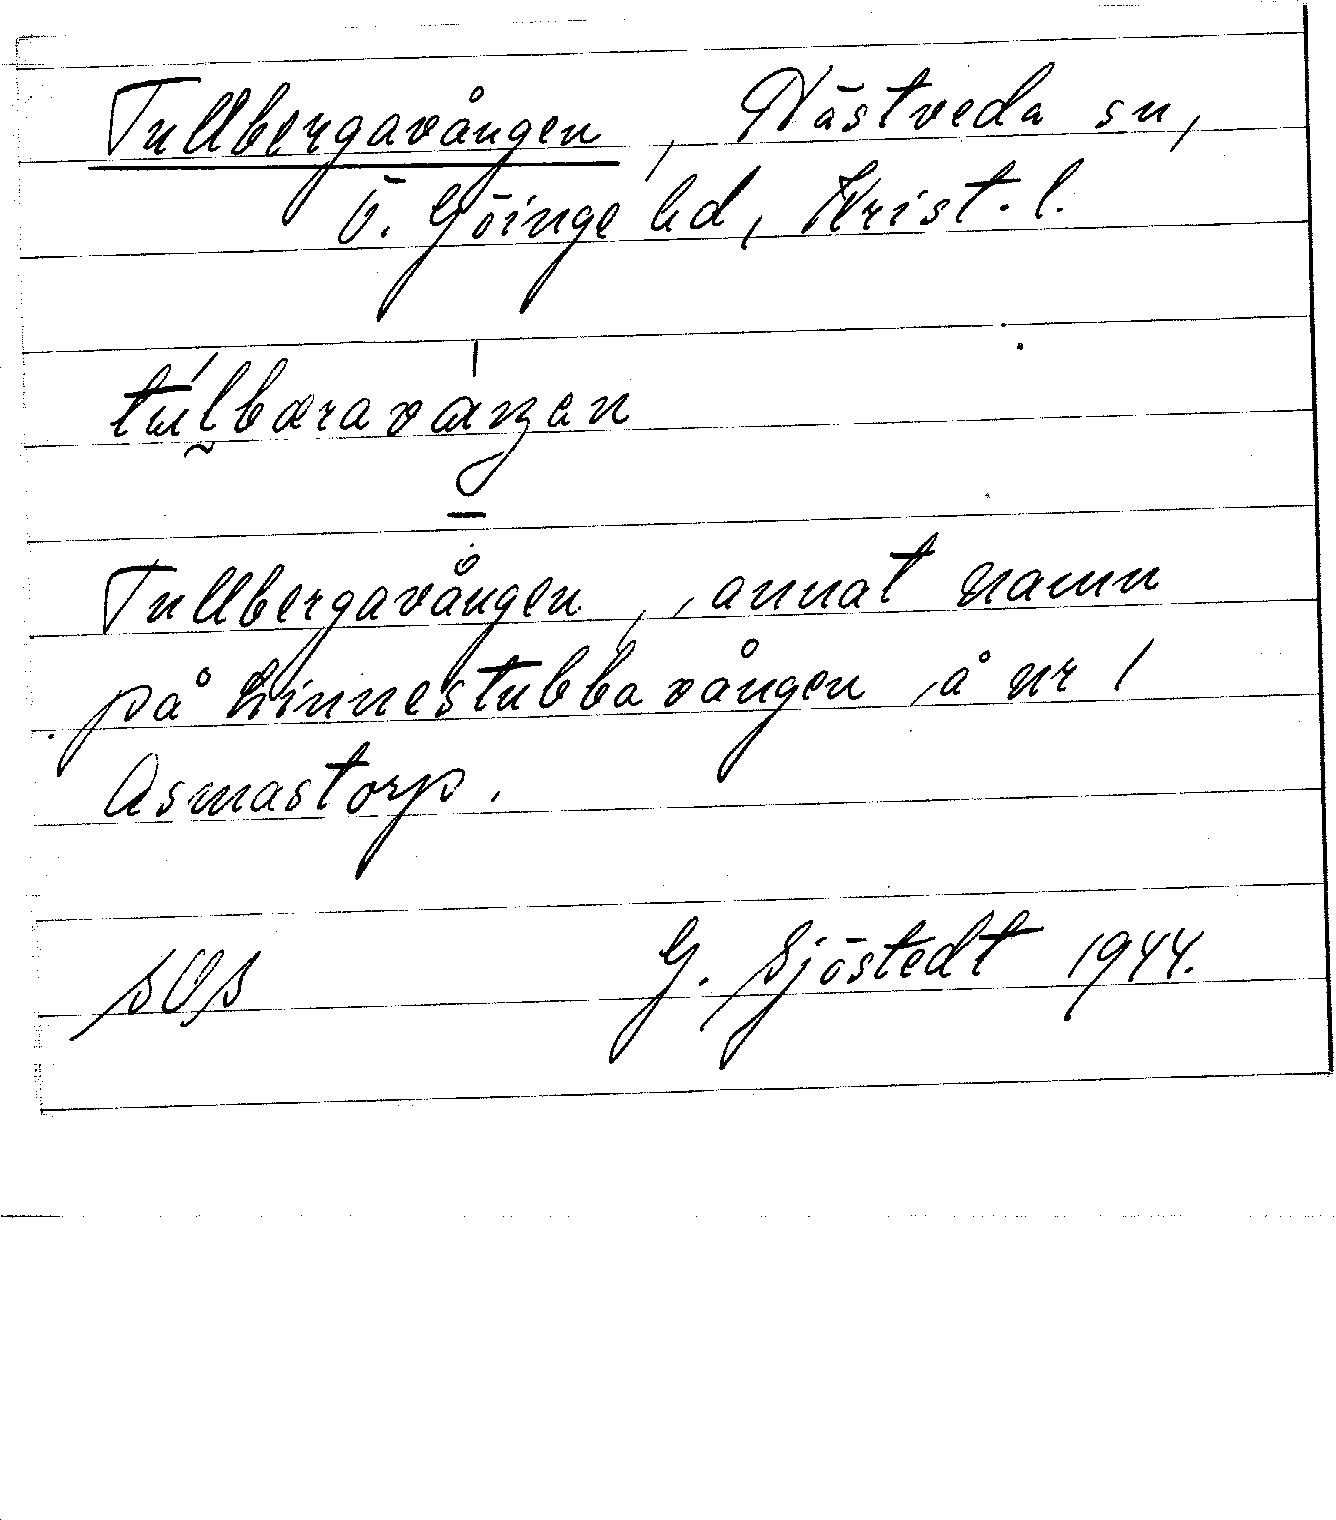 Tullbergavången, Hästveda sn,
Ö. Göinge hd, Krist. l.
Tullbergavången, annat namn
på Linnestubbavången å nr 1
Asmastorp.
SOS G. Sjöstedt 1944.